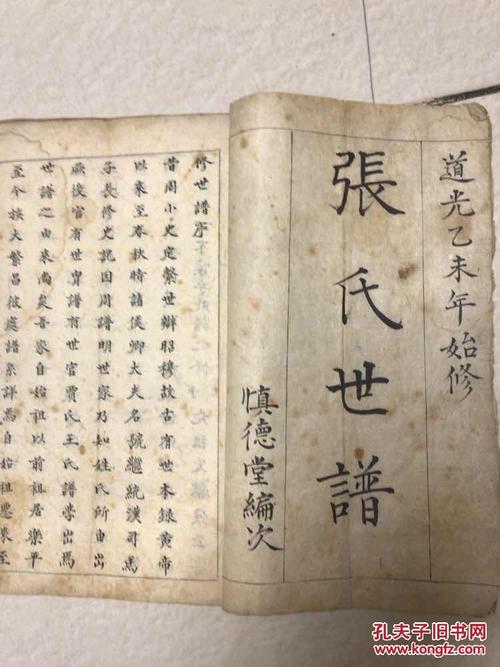 道光乙未年始修
張氏世譜
慎德堂編次
修世譜序
昔周小史定繫世辯昭穆故古有世本錄黃帝
以來至春秋時諸侯卿大夫名號繼統漢司馬
子長修史記因周譜明世家乃知姓氏所由出
厥後官有世冑譜有世官賈氏王氏譜學出焉
世譜之由來尚矣吾家自始祖以前祖居樂平
至今族大繁昌彼譜詳焉自始祖來至
孔夫子旧书网
www.kongfz.com